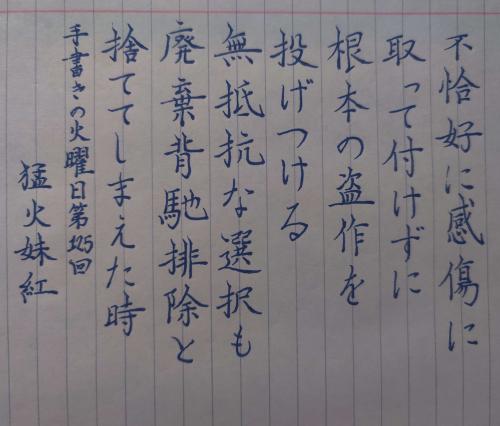 不恰好に感傷に
取って付けずに
根本の盗作を
投げつける
無抵抗な選択も
廃棄背馳排除と
捨ててしまえた時
手書きの火曜日第325回
猛火妹紅